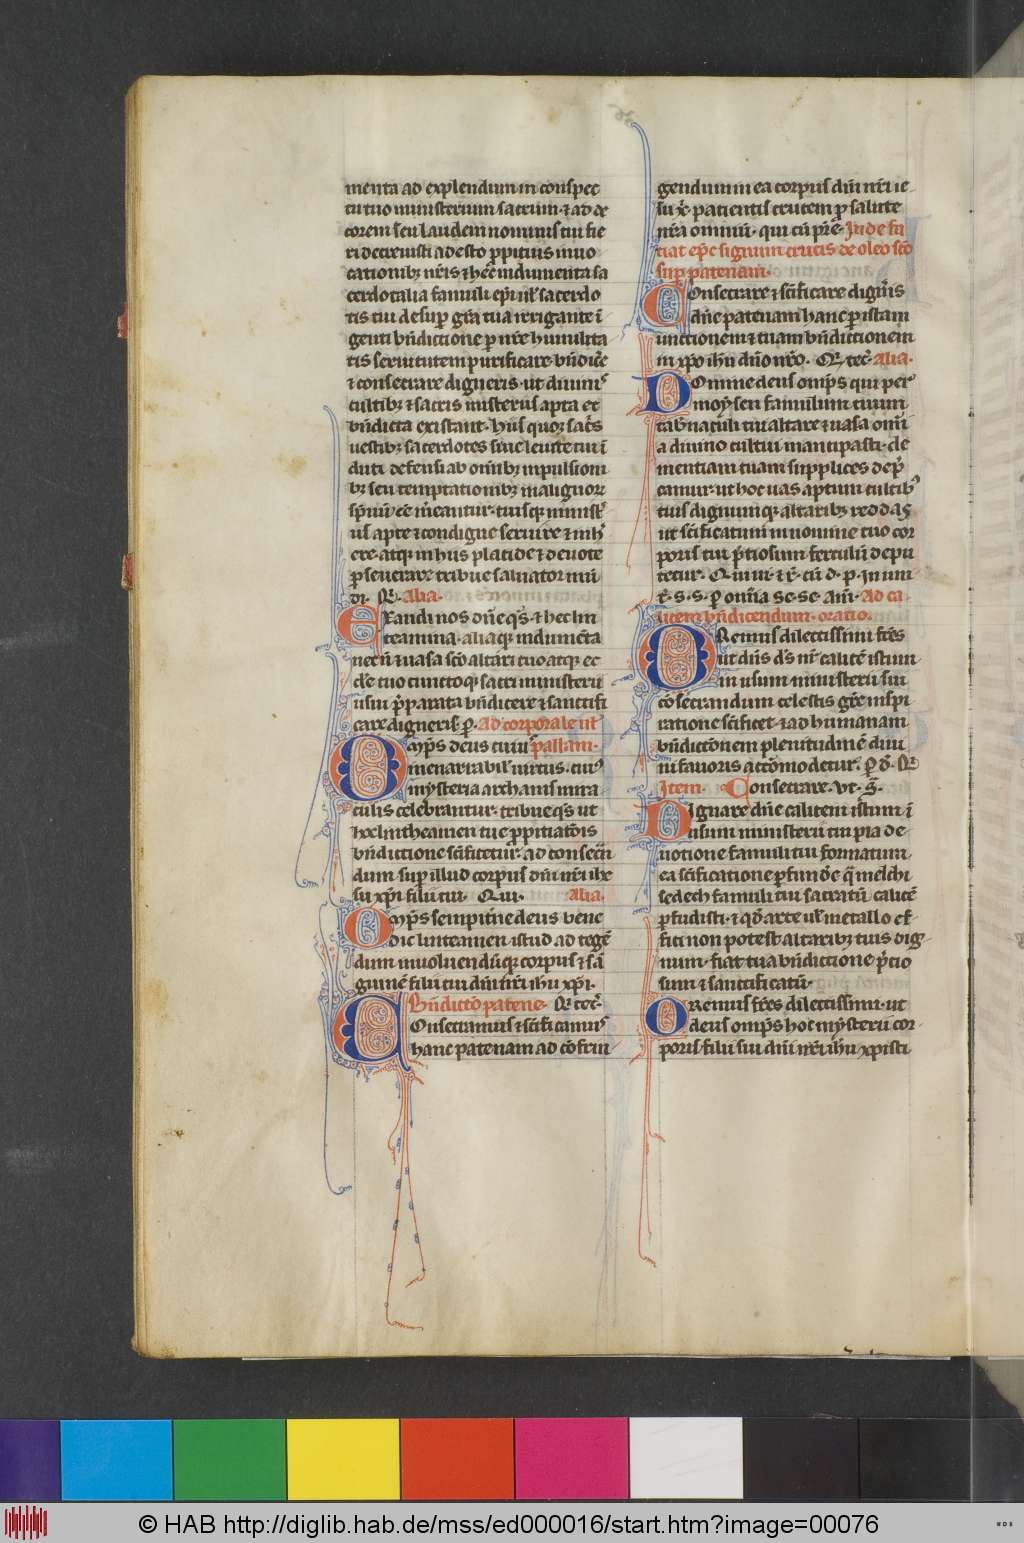 menta ad explendum in conspec
tu tuo ministerium sacrum. ⁊ ad de
corem seu laudem nominis tui fie
ri decreuisti adesto ꝓpitius inuo
cationibꝫ nr̃is ⁊ hec indumenta sa
cerdotalia famuli ep̃i ul̃ sacerdo
tis tui desuꝑ gr̃a tua irrigante ĩ
genti bñdictione ꝑ nr̃e humilita
tis seruitutem purificare. bñdic̃e
⁊ consecrare digneris. ut diuinis
cultibꝫ ⁊ sacris misteriis apta et
bñdicta existant. hiis quoqꝫ sac̃s
uestibꝫ sacerdotes siue leuite tui ĩ
duti defensi ab om̃ibꝫ inpulsioni
bꝫ seu temptationibꝫ malignoꝝ
sp̃uũ ẽe m̃eantur. tuisqꝫ minist̃i
ul̃ apte ⁊ condigne seruire ⁊ inh̃
ere atqꝫ in hiis placide ⁊ deuote
ꝑseuerare tribue saluator mũ
di. R̃. Alia.
Exaudi nos dñe q̃s. ⁊ hec lin
teamina. aliaqꝫ indumẽta
necñ ⁊ uasa sc̃o altari tuo atqꝫ ec
cl̃e tue cunctoqꝫ sacri ministerii
usui p̃parata bñdicere ⁊ sanctifi
care digneris. ꝑ. Ad corporale ul̃
Omp̃s deus cuius pallam.
inenarrabil̃ uirtus. cuiꝰ
mysteria archanis mira
culis celebrantur. tribue q̃s ut
hoc lintheamen tue ꝓpitiatõis
bñdictione sc̃ificetur. ad consec̃n
dum suꝑ illud corpus dñi nr̃i ihe
su xp̃i filii tui. Qui. Alia.
Omp̃s sempit̃ne deus bene
dic linteamen istud ad tegẽ
dum inuoluendũqꝫ corpus ⁊ sã
guinẽ filii tui dñi nr̃i ihu xp̃i.
Bñdictio patene. R̃ tec̃.
Consecramus ⁊ sc̃ificamus
hanc patenam ad cõficiẽ
gendum in ea corpus dñi nr̃i ie
su x̃. patientis crucem ꝑ salute
nr̃a omniũ. qui cũ pr̃e. Inde fa
ciat ep̃c signum crucis de oleo sc̃o
suꝑ patenam.
Consecrare ⁊ sc̃ificare digñis
dñe patenam hanc ꝑ istam
unctionem ⁊ tuam bñdictionem
in xp̃o ihũ dño nr̃o. Q̃ tec̃. Alia.
Domine deus omp̃s qui per
moysen famulum tuum
tab̃naculi tui altare ⁊ uasa om̃i
a diuino cultui mancipasti. cle
mentiam tuam supplices dep̃
camur. ut hoc uas aptum cultibꝰ
tuis dignumqꝫ altaribꝫ reddas
ut sc̃ificatum in nomine tuo cor
poris tui p̃tiosum ferculũ depu
tetur. Qui ui. ⁊ r̃. cũ d. p. In uni
t̃. s. s. ꝑ omĩa se. se. am̃. Ad ca
licem bñdicendum. oratio.
Oremus dilectissimi fr̃es
ut dñs d̃s nr̃ calicẽ istum
in usum ministerii sui
cõsecrandum celestis gr̃e inspi
ratione sc̃ificet. ⁊ ad humanam
bñdictõnem plenitudinẽ diui
ni fauoris accõmodetur. ꝑ d. R̃
Item. Consecrare. Vt. s̃.
Dignare dñe calicem istum ĩ
usum ministerii tui pia de
uotione famuli tui formatum.
ea sc̃ificatione ꝑfundẽ q̃ melchi
sedech famuli tui sacratũ calicẽ
ꝑfudisti. ⁊ q̃d arte ul̃ metallo ef
fici non potest altaribꝫ tuis dig
num. fiat tua bñdictione p̃cio
sum ⁊ sanctificatũ.
Oremus fr̃es dilectissimi. ut
deus omp̃s hoc mysteriũ cor
poris filii sui dñi nr̃i ihũ xpisti
© HAB http://diglib.hab.de/mss/ed000016/start.htm?image=00076